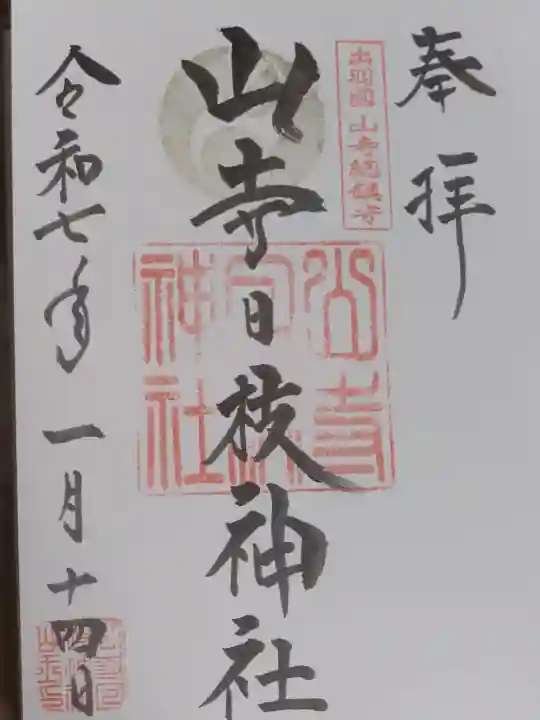 奉拝
出羽國山寺総鎮守
山寺日枝神社
山寺日枝神社
令和七年一月十四日